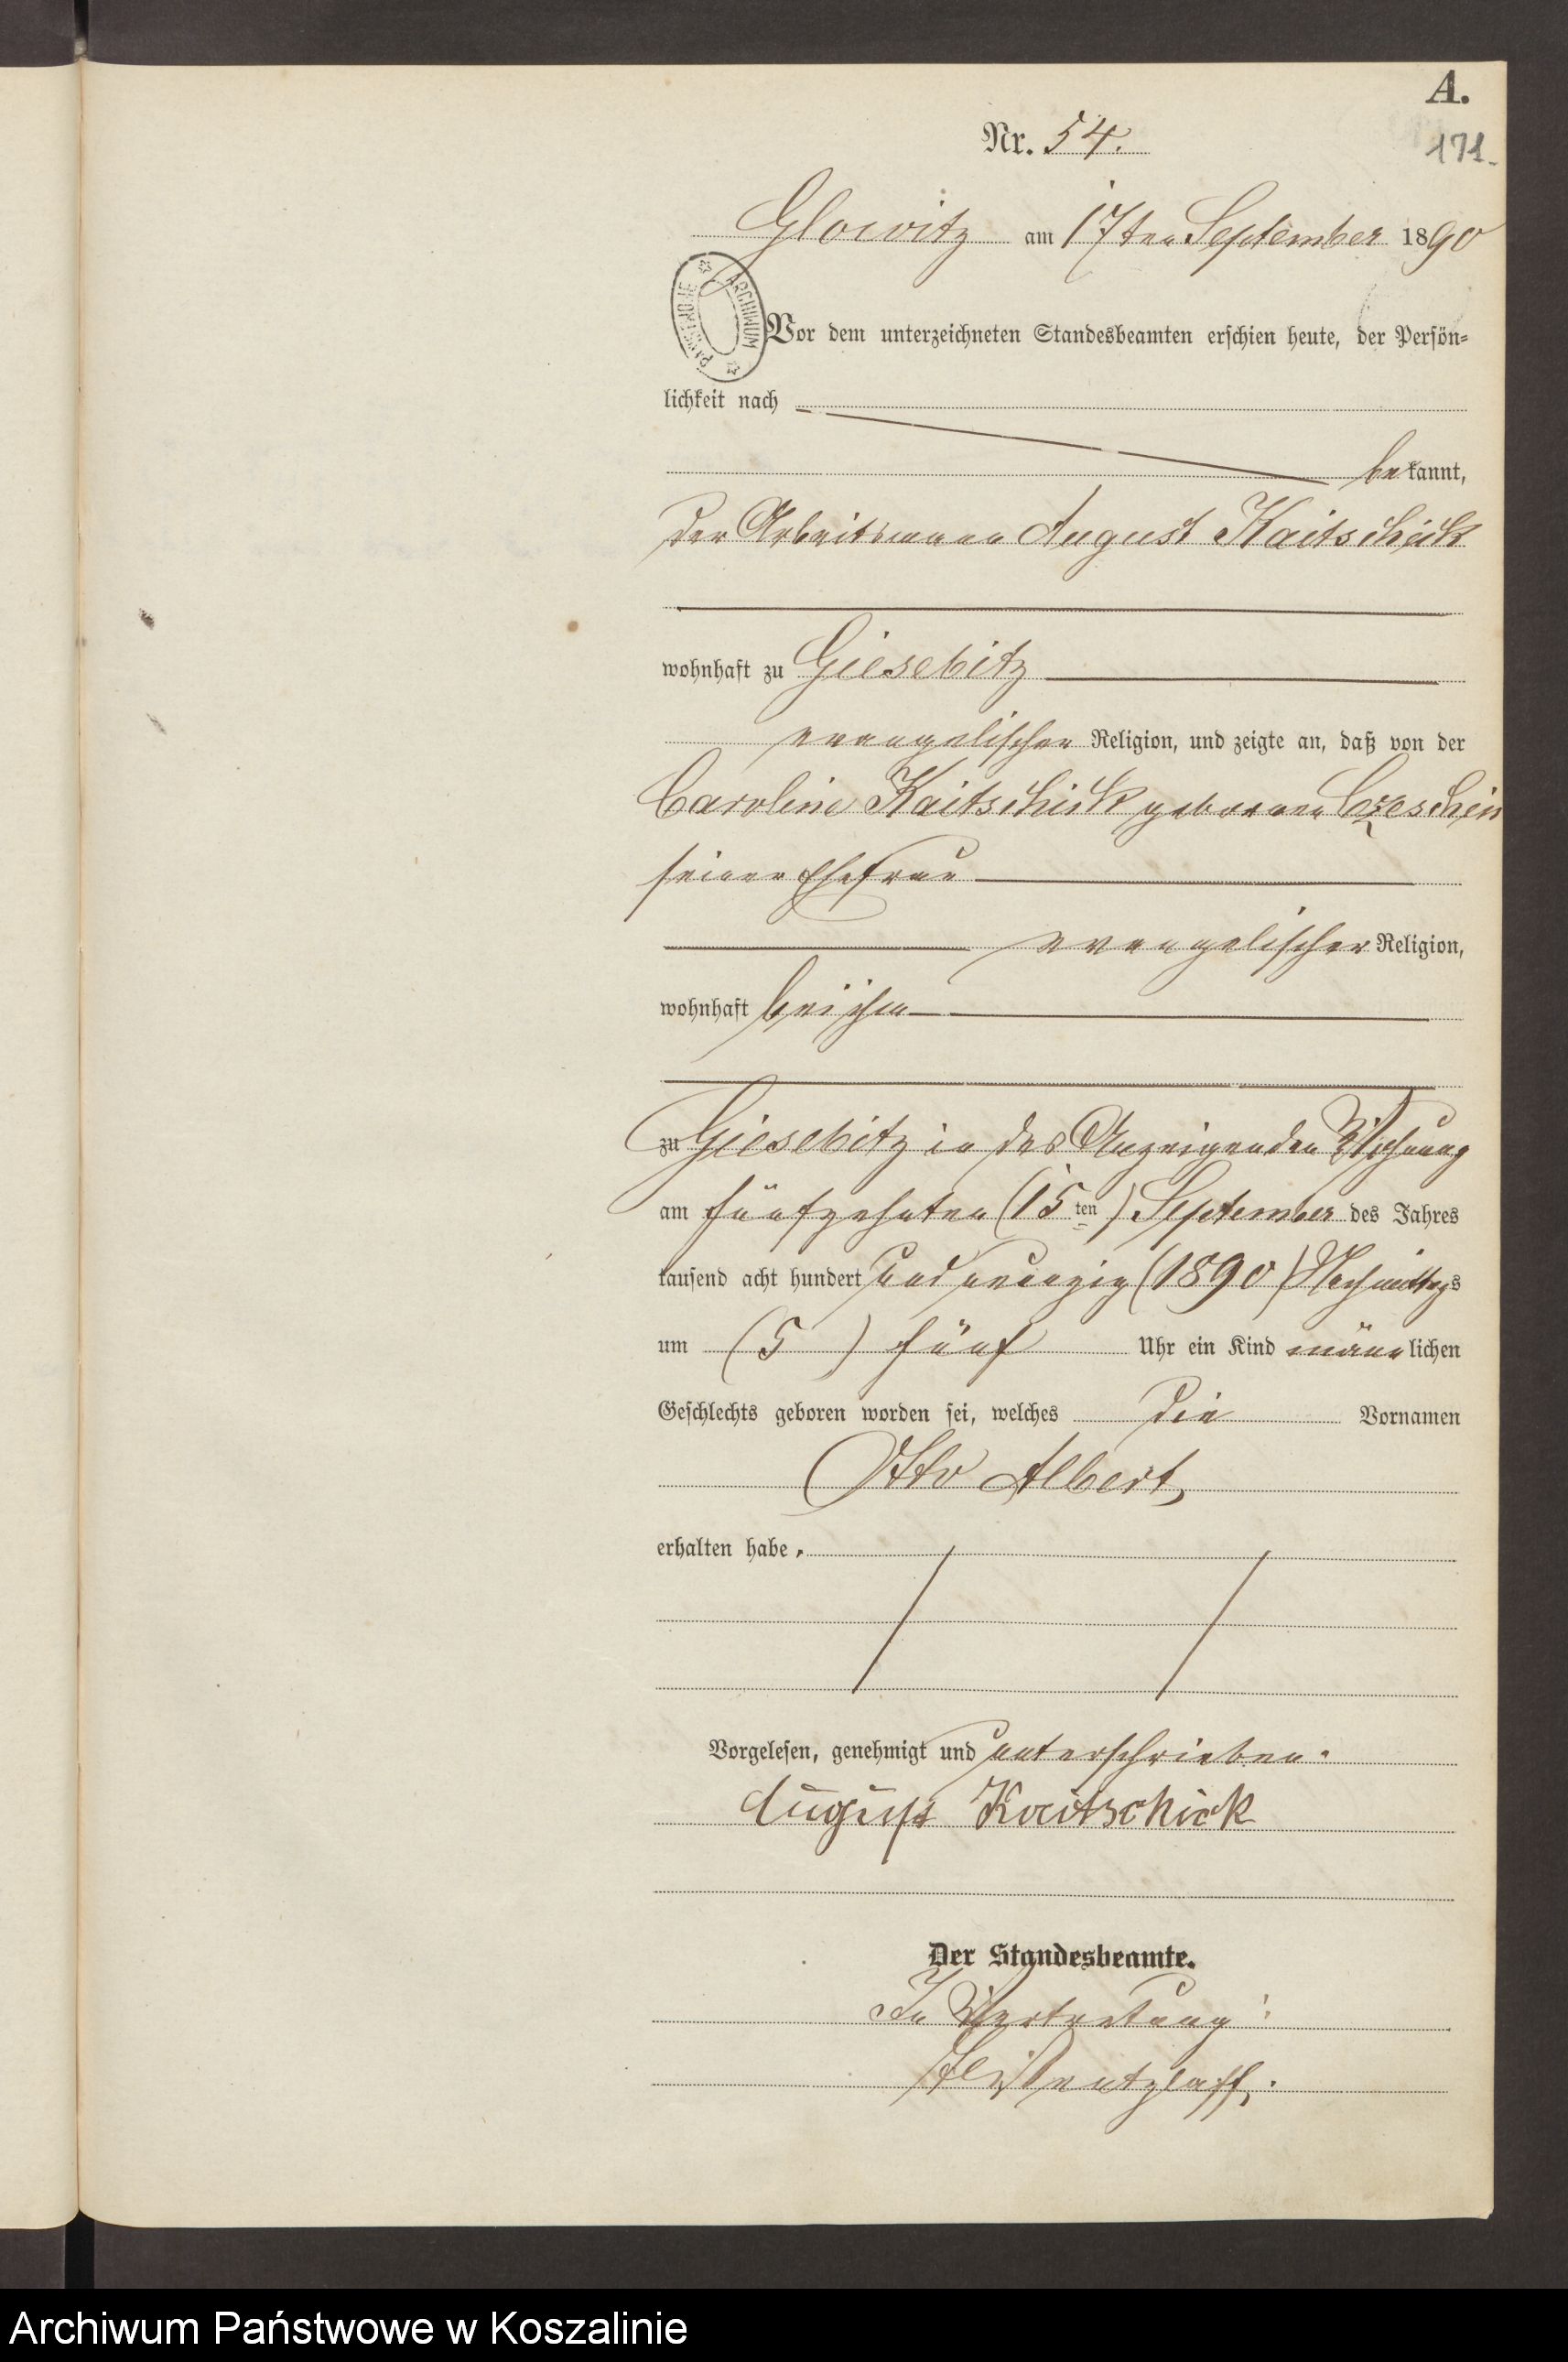 A.
Nr. 54.
171.
Glowitz am 17ten September 1890
ARCHIWUM PAŃSTWOWE
Vor dem unterzeichneten Standesbeamten erschien heute, der Persön-
lichkeit nach
bekannt,
der Arbeitsmann August Kaitschick
wohnhaft zu Giesebitz
evangelischer Religion, und zeigte an, daß von der
Caroline Kaitschick geborenen Czeschin
seiner Ehefrau
evangelischer Religion,
wohnhaft bei ihm
zu Giesebitz in des Anzeigenden Wohnung
am fünfzehnten (15ten) September des Jahres
tausend acht hundert und neunzig (1890) Nachmittags
um (5) fünf Uhr ein Kind männlichen
Geschlechts geboren worden sei, welches die Vornamen
Otto Albert,
erhalten habe.
Vorgelesen, genehmigt und unterschrieben.
August Kaitschick
Der Standesbeamte.
In Vertretung:
Archiwum Państwowe w Koszalinie